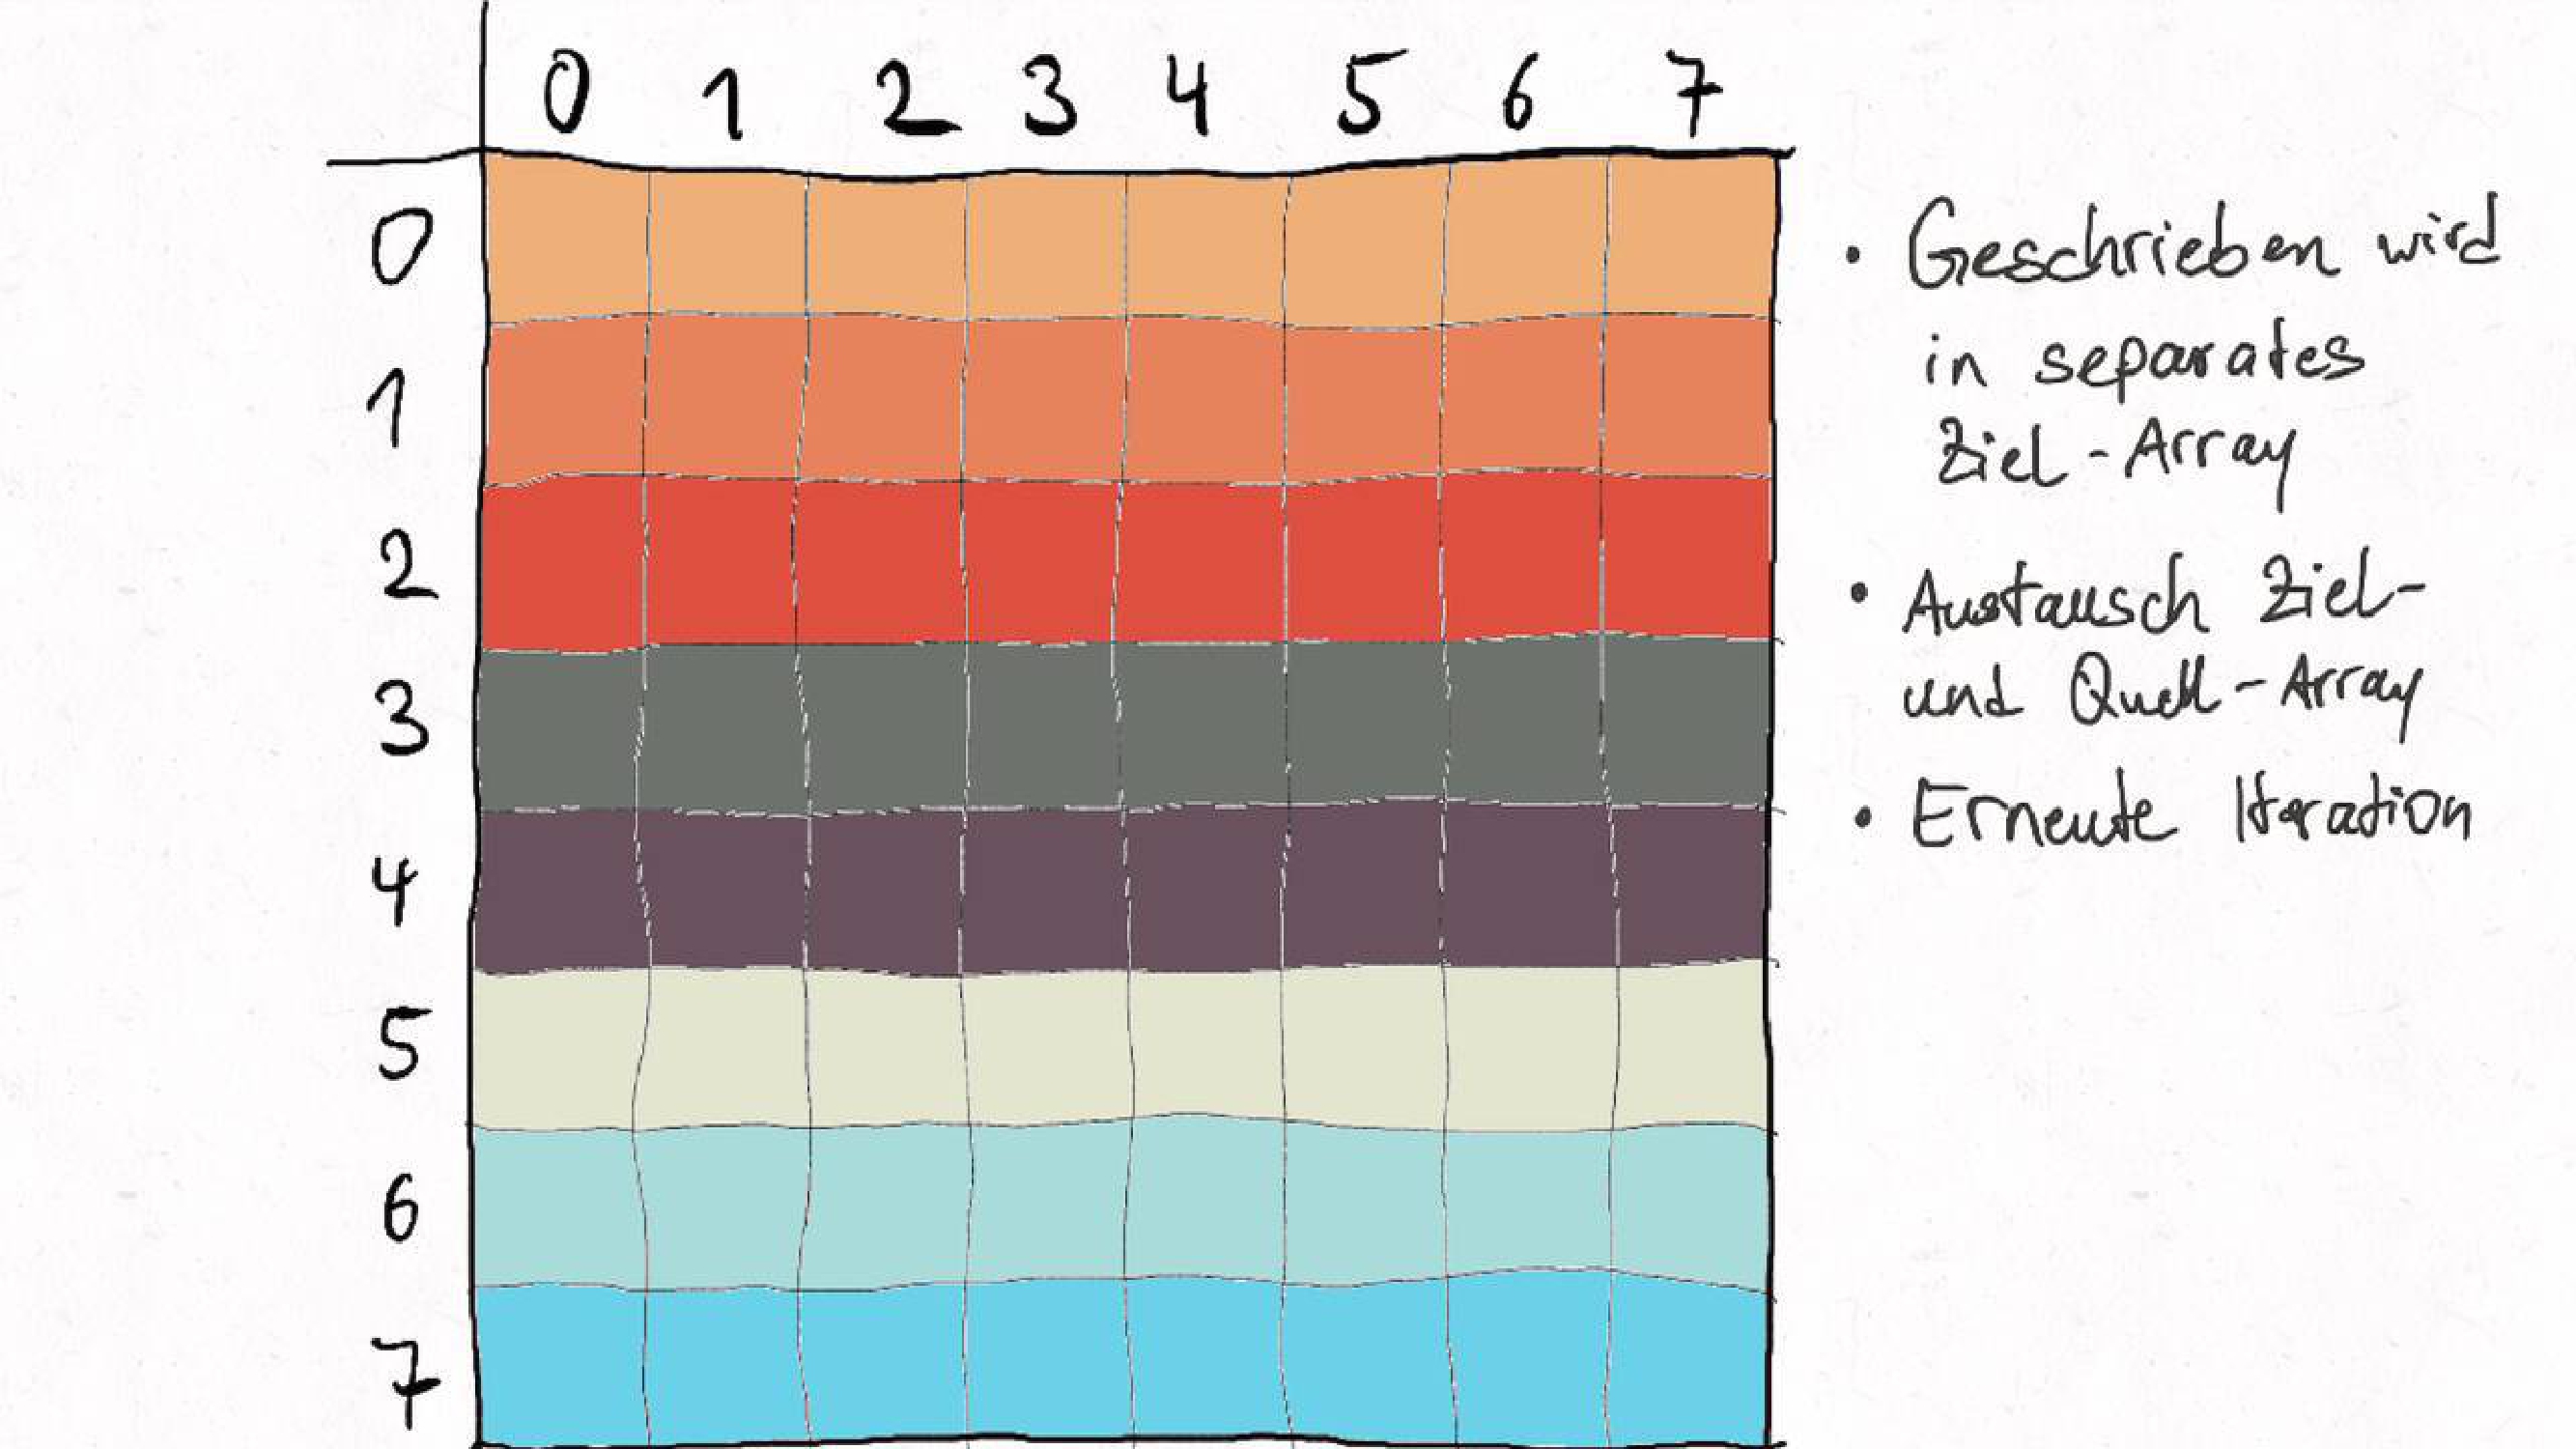 0 1 2 3 4 5 6 7
0
1
2
3
4
5
6
7
• Geschrieben wird
in separates
Ziel-Array
• Austausch Ziel-
und Quell-Array
• Erneute Iteration